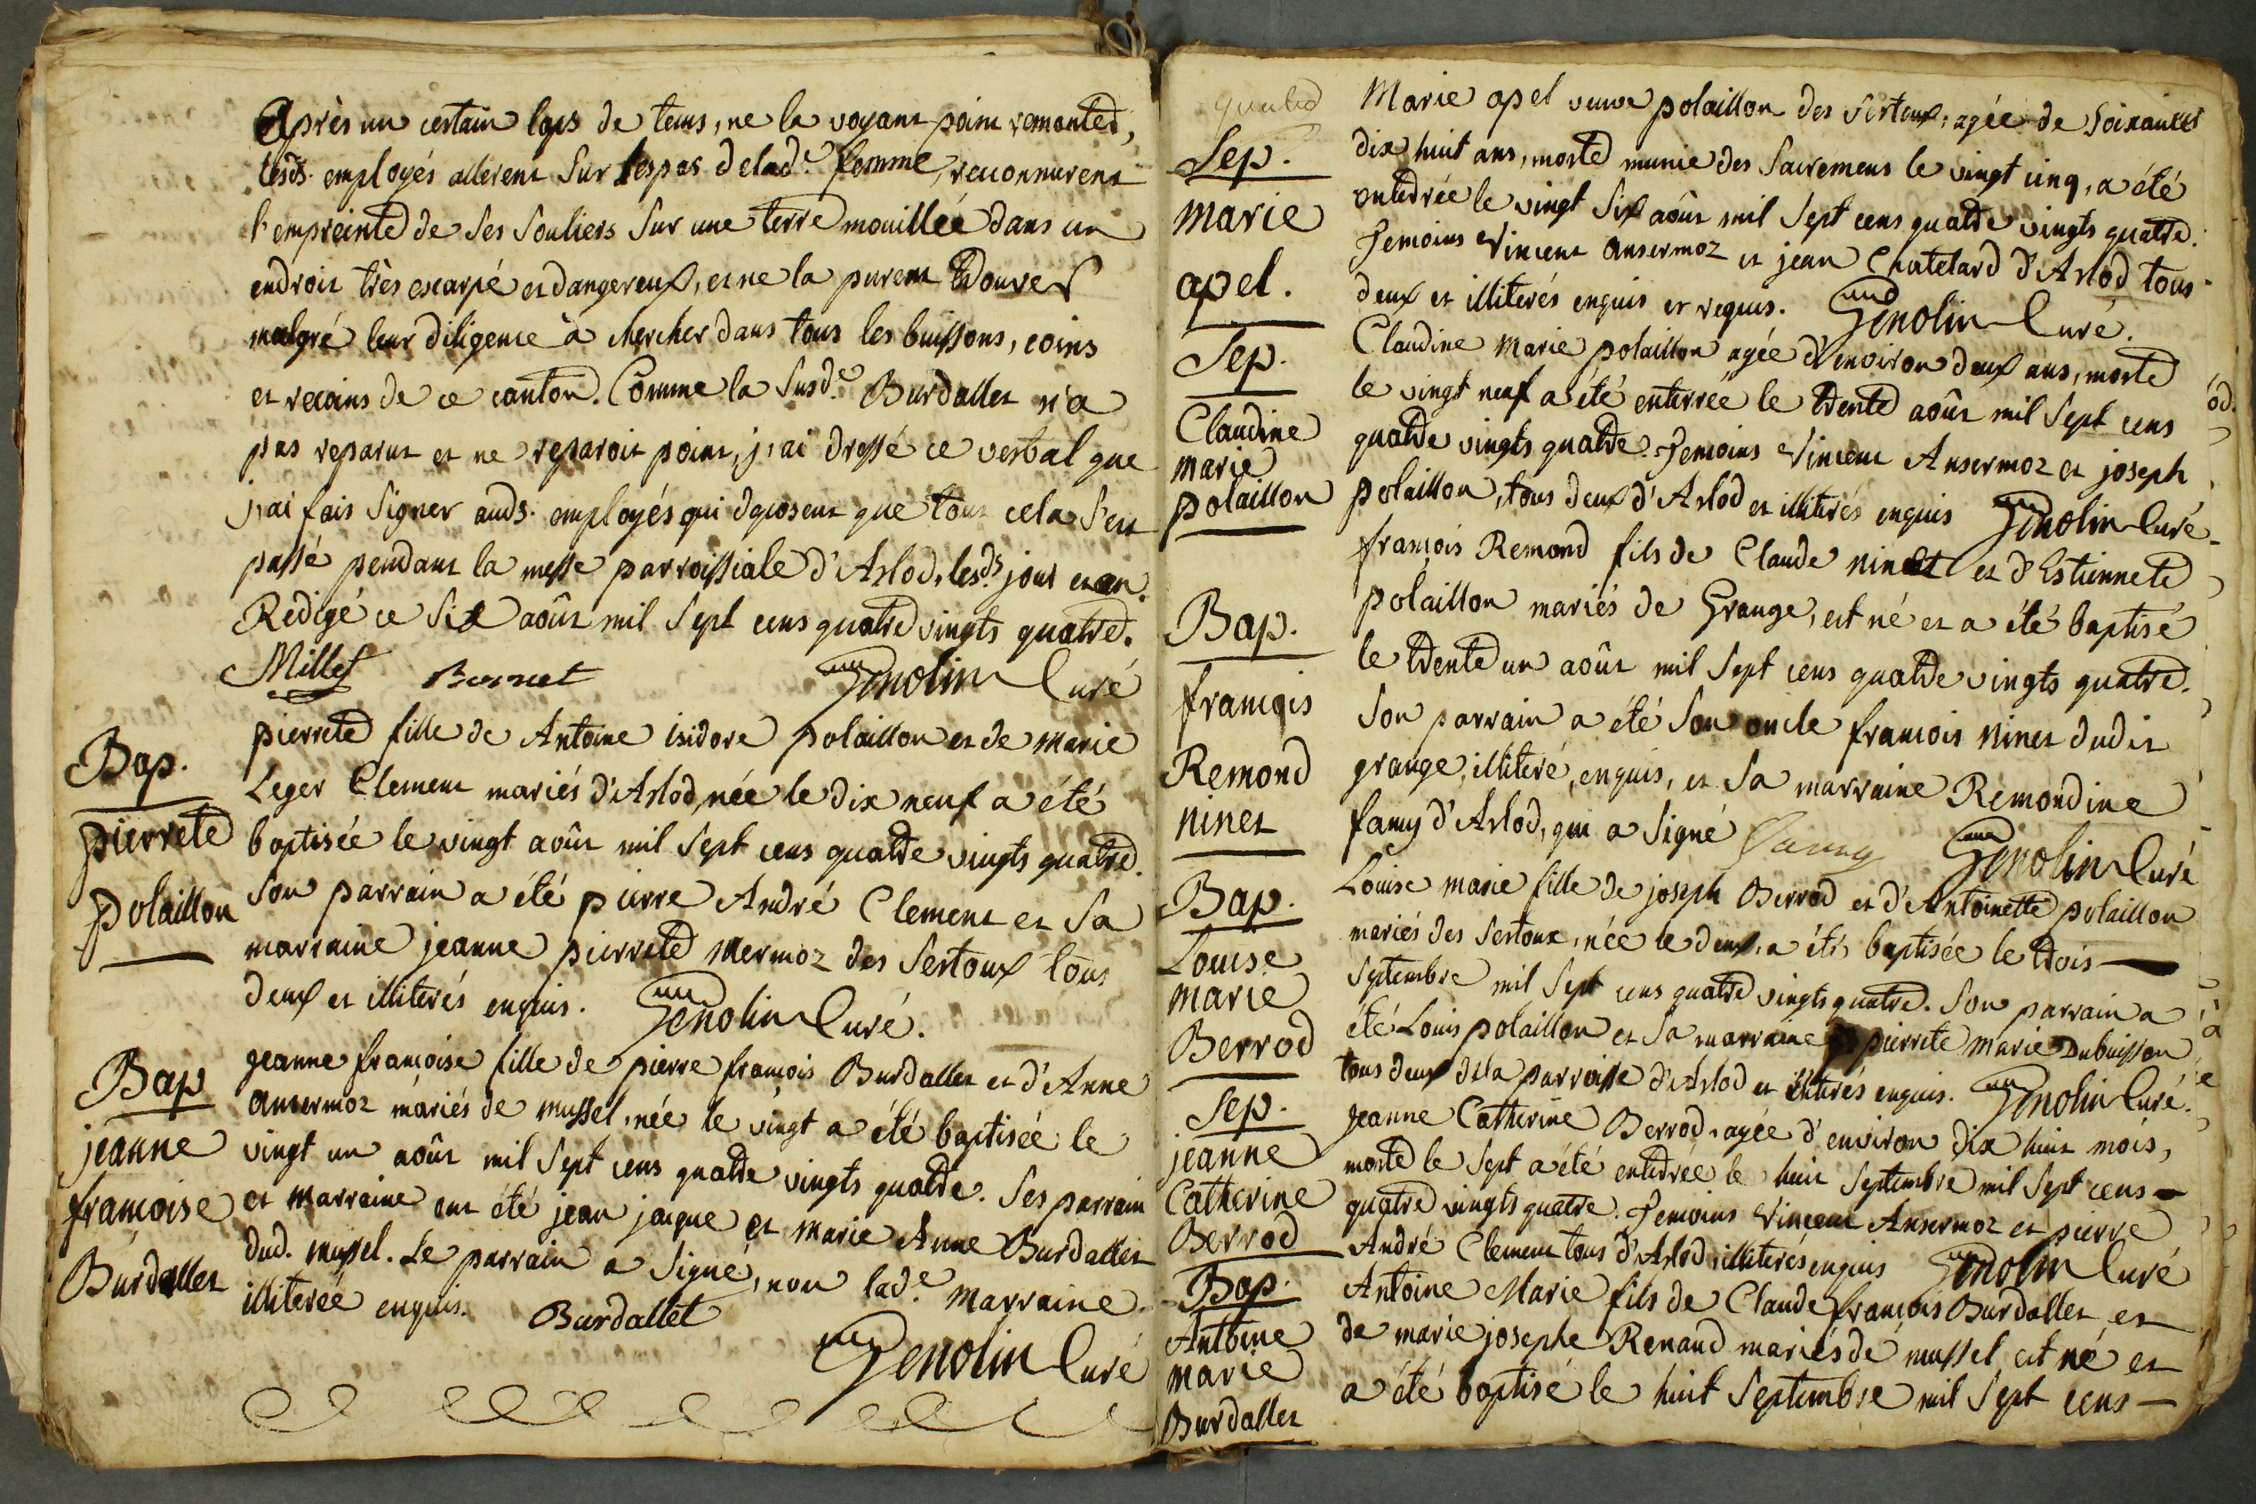 Après un certain laps de tems, ne la voyant point remonter,
lesds. employés allerent sur les pas de lade. femme, reconnurent
l'empreinte de ses souliers sur une terre mouillée dans un
endroit très escarpé et dangereux, et ne la purent trouver
malgré leur diligence à chercher dans tous les buissons, coins
et recoins de ce canton. Comme la susde. Burdallet n'a
pas reparut et ne reparoit point, j'ai dressé ce verbal que
j'ai fais signer auds. employés qui deposent que tout cela s'est
passé pendant la messe parroissiale d'Arlod, lesds. jour et an.
Redigé ce six août mil sept cens quatre vingts quatre.
Millet Bornet Genolin Curé
Bap.
pierrete
polaillon
pierrete fille de Antoine isidore polaillon et de marie
Leger Clement mariés d'Arlod, née le dix neuf a été
baptisée le vingt août mil sept cens quatre vingts quatre.
Son parrain a été pierre André Clement et sa
marraine jeanne pierrete Mermoz des Sertoux tous
deux et illiterés enquis. Genolin Curé.
Bap
jeanne
francoise
Burdallet
jeanne françoise fille de pierre françois Burdallet et d'Anne
ansermoz mariés de mussel, née le vingt a été baptisée le
vingt un août mil sept cens quatre vingts quatre. Ses parrain
et marraine ont été jean jacque et marie Anne Burdallet
dud. mussel. Le parrain a signé, non lade. marraine
illiterée enquis. Burdallet
Genolin Curé
Sep.
marie
apel.
Marie apel veuve polaillon des sertoux, agée de soixantes
dix huit ans, morte munie des sacremens le vingt cinq, a été
enterrée le vingt six août mil sept cens quatre vingts quatre.
Temoins Vincent ansermoz et jean Chatelard d'Arlod tous
deux et illiterés enquis et requis. Genolin Curé.
Sep.
Claudine
marie
polaillon
Claudine marie polaillon agée d'environ deux ans, morte
le vingt neuf a été enterrée le trente août mil sept cens
quatre vingts quatre. Temoins Vincent Ansermoz et joseph
polaillon, tous deux d'Arlod et illiterés enquis Genolin Curé.
Bap.
francois
Remond
ninet
françois Remond fils de Claude ninet et d'Estiennete
polaillon mariés de Grange, est né et a été baptisé
le trente un août mil sept cens quatre vingts quatre.
Son parrain a été son oncle francois ninet dudit
grange, illiteré, enquis, et sa marraine Remondine
famy d'Arlod, qui a signé famy Genolin Curé
Bap.
Louise
marie
Berrod
Louise marie fille de joseph Berrod et d'Antoinette polaillon
mariés des sertoux, née le deux, a été baptisée le trois
septembre mil sept cens quatre vingts quatre. Son parrain a
été Louis polaillon et sa marraine pierrete marie Dubuisson
tous deux de la parroisse d'Arlod et illiterés enquis. Genolin Curé.
Sep.
jeanne
Catherine
Berrod
jeanne Catherine Berrod, agée d'environ dix huit mois,
morte le sept a été enterrée le huit septembre mil sept cens
quatre vingts quatre. Temoins Vincent Ansermoz et pierre
André Clement tous d'Arlod, illiterés enquis Genolin Curé
Bap.
Antoine
marie
Burdallet
Antoine Marie fils de Claude françois Burdallet et
de marie josephe Renaud mariés de mussel est né et
a été baptisé le huit septembre mil sept cens